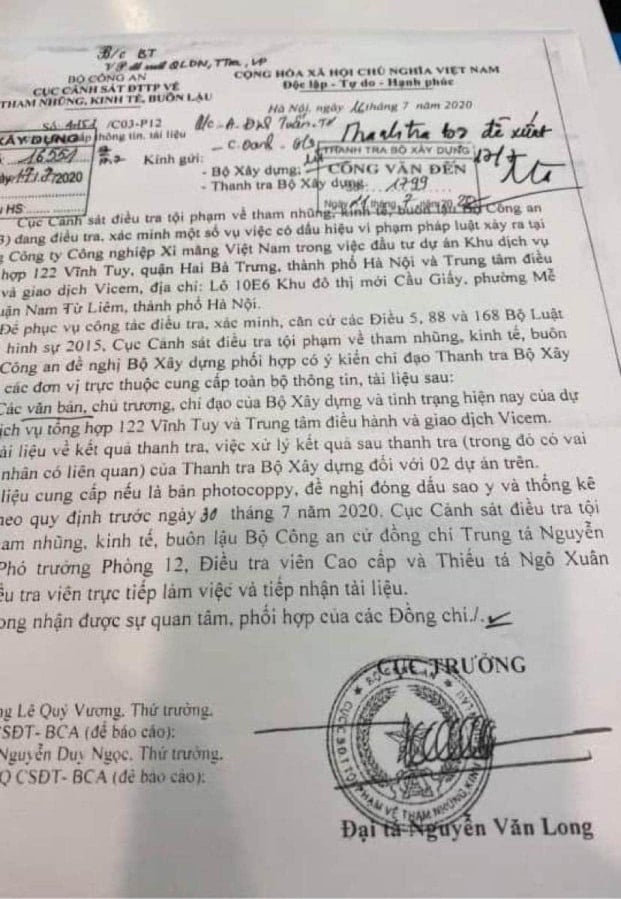 B/c BT
BỘ CÔNG AN
CỘNG HÒA XÃ HỘI CHỦ NGHĨA VIỆT NAM
CỤC CẢNH SÁT ĐTTP VỀ
Độc lập - Tự do - Hạnh phúc
THAM NHŨNG, KINH TẾ, BUÔN LẬU
Hà Nội, ngày 16 tháng 7 năm 2020
/C03-P12
Thanh tra bộ đề xuất
XÂY DỰNG
thông tin, tài liệu
THANH TRA BỘ XÂY DỰNG
16551
Kính gửi:
- Bộ Xây dựng;
CÔNG VĂN ĐẾN
/2020
- Thanh tra Bộ Xây dựng.
1799
HS:
Cục Cảnh sát điều tra tội phạm về tham nhũng, kinh tế, buôn lậu Bộ Công an
3) đang điều tra, xác minh một số vụ việc có dấu hiệu vi phạm pháp luật xảy ra tại
g Công ty Công nghiệp Xi măng Việt Nam trong việc đầu tư dự án Khu dịch vụ
hợp 122 Vĩnh Tuy, quận Hai Bà Trưng, thành phố Hà Nội và Trung tâm điều
và giao dịch Vicem, địa chỉ: Lô 10E6 Khu đô thị mới Cầu Giấy, phường Mễ
uận Nam Từ Liêm, thành phố Hà Nội.
Để phục vụ công tác điều tra, xác minh, căn cứ các Điều 5, 88 và 168 Bộ Luật
hình sự 2015, Cục Cảnh sát điều tra tội phạm về tham nhũng, kinh tế, buôn
Công an đề nghị Bộ Xây dựng phối hợp có ý kiến chỉ đạo Thanh tra Bộ Xây
các đơn vị trực thuộc cung cấp toàn bộ thông tin, tài liệu sau:
Các văn bản, chủ trương, chỉ đạo của Bộ Xây dựng và tình trạng hiện nay của dự
ịch vụ tổng hợp 122 Vĩnh Tuy và Trung tâm điều hành và giao dịch Vicem.
ài liệu về kết quả thanh tra, việc xử lý kết quả sau thanh tra (trong đó có vai
nhân có liên quan) của Thanh tra Bộ Xây dựng đối với 02 dự án trên.
liệu cung cấp nếu là bản photocoppy, đề nghị đóng dấu sao y và thống kê
heo quy định trước ngày 30 tháng 7 năm 2020. Cục Cảnh sát điều tra tội
am nhũng, kinh tế, buôn lậu Bộ Công an cử đồng chí Trung tá Nguyễn
Phó trưởng Phòng 12, Điều tra viên Cao cấp và Thiếu tá Ngô Xuân
ều tra viên trực tiếp làm việc và tiếp nhận tài liệu.
ong nhận được sự quan tâm, phối hợp của các Đồng chí./.
CỤC TRƯỞNG
ng Lê Quý Vương, Thứ trưởng,
CSĐT- BCA (để báo cáo);
Nguyễn Duy Ngọc, Thứ trưởng,
Q CSĐT- BCA (để báo cáo);
Đại tá Nguyễn Văn Long